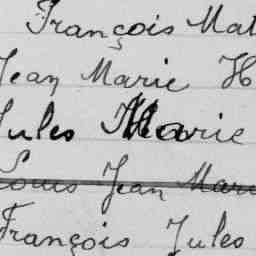 François Mat
Jean Marie H
Jules Marie
Louis Jean Marie
François Jules